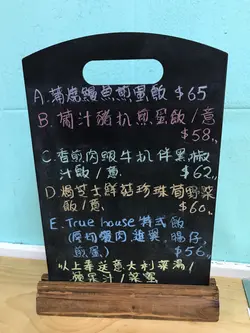 A. 蒲燒鰻魚煎蛋飯 $65
B. 葡汁豬扒煎蛋飯/意
$58.
C. 香煎肉眼牛扒伴黑椒
汁飯/意 $62.
D. 焗芝士鮮菇珍珠筍野菜
飯/意 $60.
E. True house 特式飯
(厚切餐肉進興、腸仔,
煎蛋) $56
以上奉送意大利菜湯/
蘋果汁/